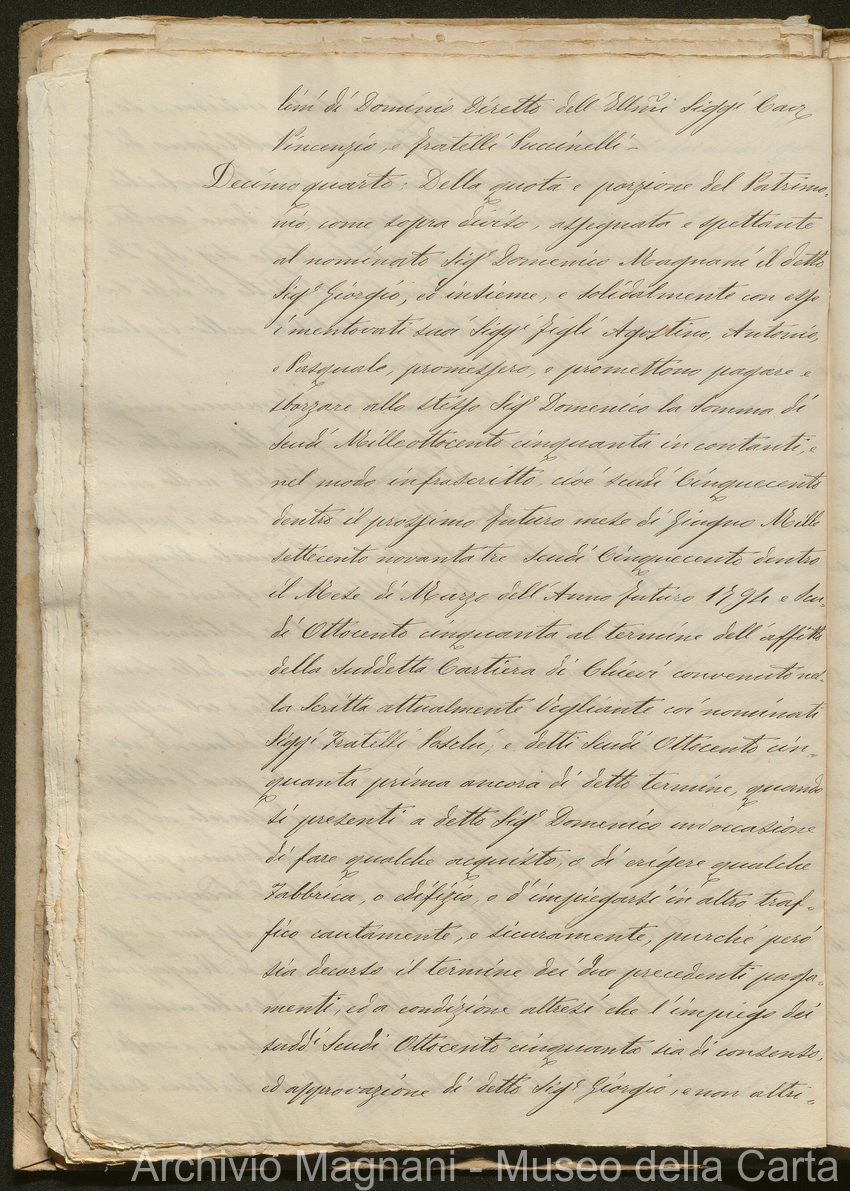 lini di Dominio Diretto dell'Ellmi Siggi Cav
Vincenzio, e fratelli Puccinelli-
Decimoquarto: Della quota e porzione del Patrimo-
nio, come sopra diviso, assegnata e spettante
al nominato Sige Domenico Magnani il detto
Sige Giorgio, ed insieme, e solidalmente con esso
i mentovati suoi Siggi figli Agostino, Antonio,
e Pasquale, promessero, e promettono pagare e
sborzare allo stesso Sige Domenico la Somma di
Scudi Milleottocento cinquanta in contanti, e
nel modo infrascritto, cioè scudi Cinquecento
dentro il prossimo futuro mese di Giugno Mille
settecento novantatre scudi Cinquecento dentro
il Mese di Marzo dell'Anno futuro 1794 e Scu-
di Ottocento cinquanta al termine dell'affitto
della suddetta Cartiera di Chievi convenuto nel-
la Scritta attualmente Vegliante coi nominati
Siggi Fratelli Paschi; e detti Scudi Ottocento cin-
quanta prima ancora di detto termine, quando
si presenti a detto Sige Domenico un'occasione
di fare qualche acquisto, o di erigere qualche
Fabbrica, o edifizio, o d'impiegarsi in altro traf-
fico cautamente, e sicuramente, purché però
sia decorso il termine dei due precedenti paga-
menti, ed a condizione altresì che l'impiego dei
suddi Scudi Ottocento cinquanta sia di consenso,
ed approvazione di detto Sige Giorgio, e non altri-
Archivio Magnani - Museo della Carta